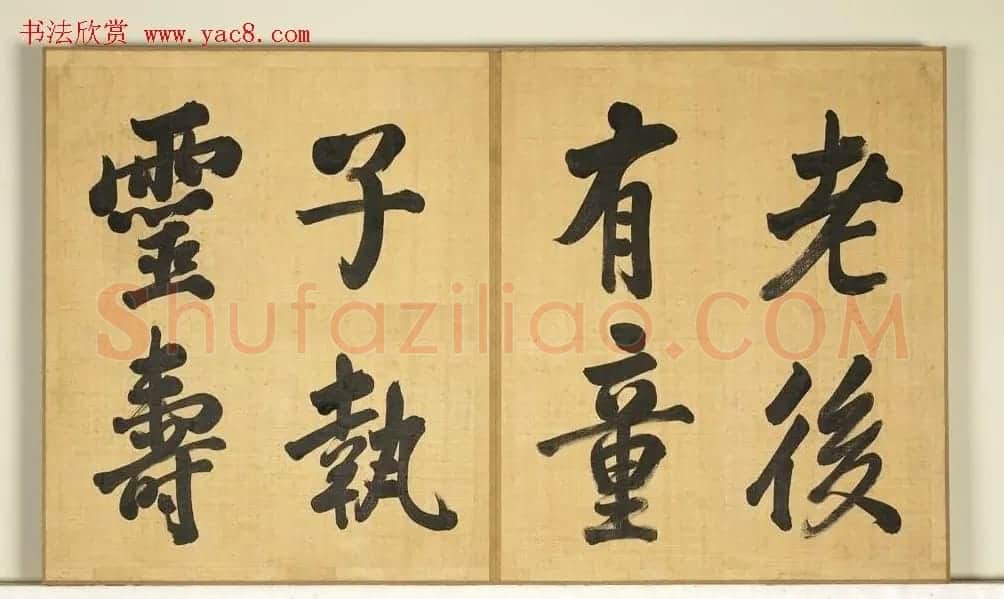 书法欣赏 www.yac8.com
老後
有童
子執
靈壽
Shufaziliao.COM